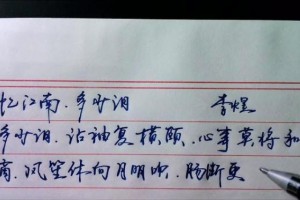 忆江南·多少泪 李煜
多少泪,沾袖复横颐。心事莫将和
滴,凤笙休向月明吹,肠断更